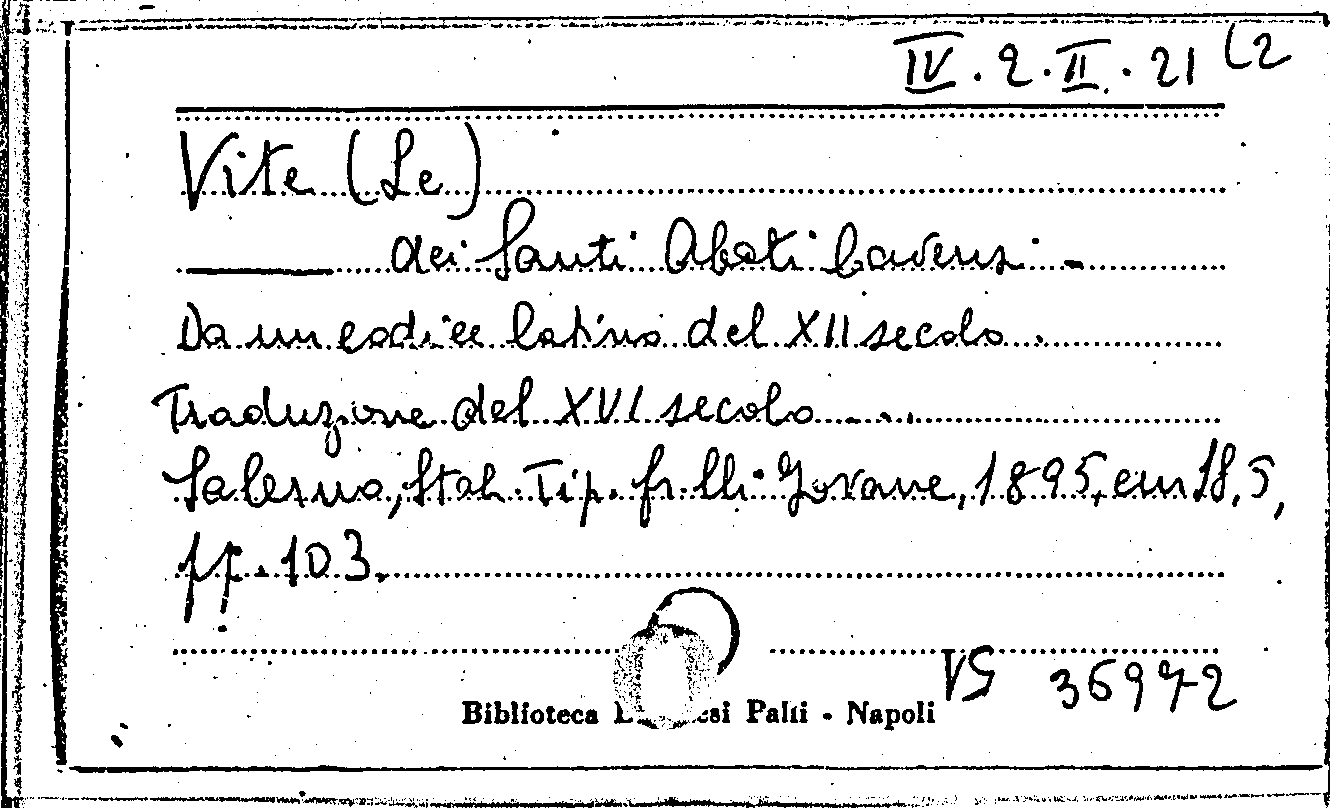 IV. 2. II. 21 (2
Vite (Le)
dei Santi Abati Cavensi -
Da un codice latino del XII secolo.
Traduzione del XVI secolo ...
Salerno, Stab. Tip. fr.lli Jovane, 1895, cm 18,5,
pp. 103.
VS 36972
Biblioteca Palti - Napoli